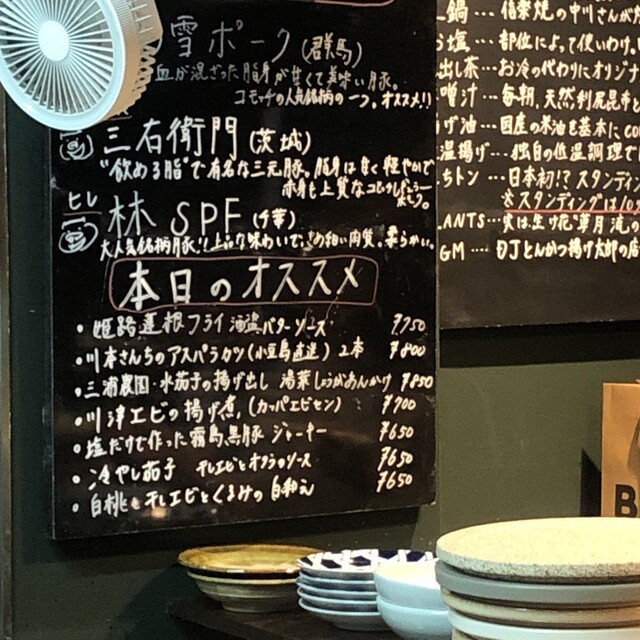 雪ポーク(群馬)
血が混ざった脂身が甘くて美味い豚。
の人気銘柄の一つ。オススメ!!
三右衛門(茨城)
"飲める脂"で有名な三元豚。脂身は甘く軽やかで
赤身も上質な
ヒレ
林SPF(千葉)
大人気銘柄豚!!上品な味わいで、きめ細い肉質。柔らかい。
本日のオススメ
・姫路蓮根フライ 酒盗バターソース ¥750
・川本さんちのアスパラカツ(小豆島直送)2本 ¥800
・三浦農園・水茄子の揚げ出し 湯葉しょうがあんかけ ¥850
・川津エビの揚げ煮(カッパエビセン) ¥700
・塩だけで作った霧島黒豚ジャーキー ¥650
・冷やし茄子 干しエビとオクラのソース ¥650
・白桃と干しエビとくるみの白和え ¥650
鍋…俗楽焼の中川さんが
塩…部位によって使いわけ
出し茶…お冷の代わりにオリジナ
噌汁…毎朝、天然利尻昆布
げ油…国産の米油を基本に
温揚げ…独自の低温調理で
ちトン…日本初!?スタンディ
※スタンディングは
ANTS…実は生け花"草月流の
GM…DJとんかつ揚げ太郎の店
B